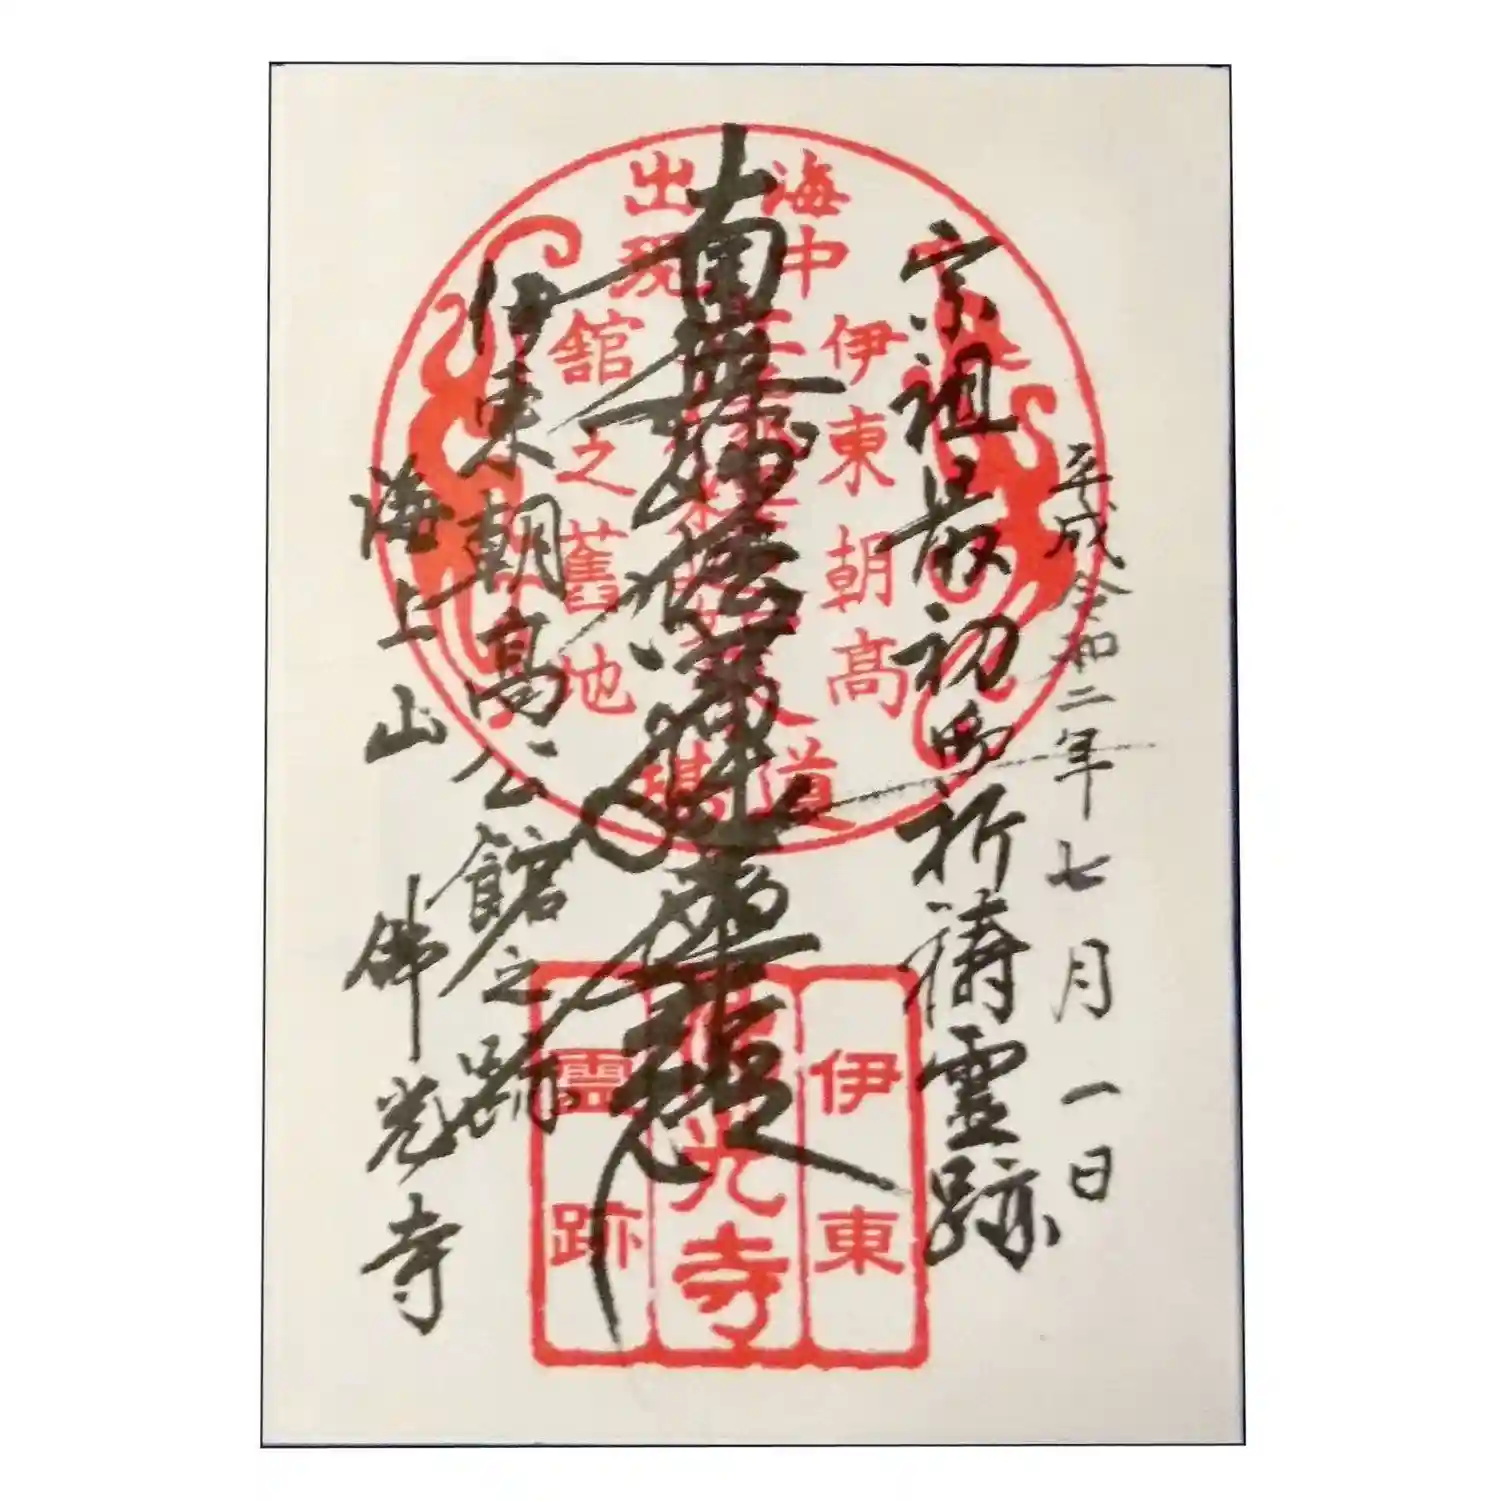 平成令和二年七月一日
宗祖最初御祈祷霊跡
南無妙法蓮華経
伊東朝高公館之跡
海上山 佛光寺
海中
出現
伊東朝高
館之舊地
道場
伊東
佛光寺
霊跡